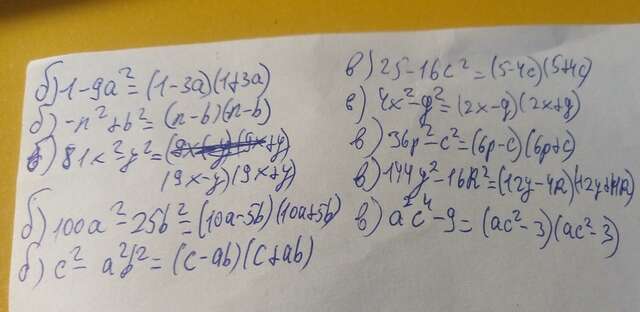 б) 1-9a²=(1-3a)(1+3a)
б) -n²+b²=(n-b)(n-b)
б) 81x²-y²=
(9x-y)(9x+y)
б) 100a²-25b²=(10a-5b)(10a+5b)
б) c²- a²b²=(c-ab)(c+ab)
в) 25-16c²=(5-4c)(5+4c)
в) 4x²-y²=(2x-y)(2x+y)
в) 36p²-c²=(6p-c)(6p+c)
в) 144y²-16k²=(12y-4k)(12y+4k)
в) a²c⁴-9=(ac²-3)(ac²-3)